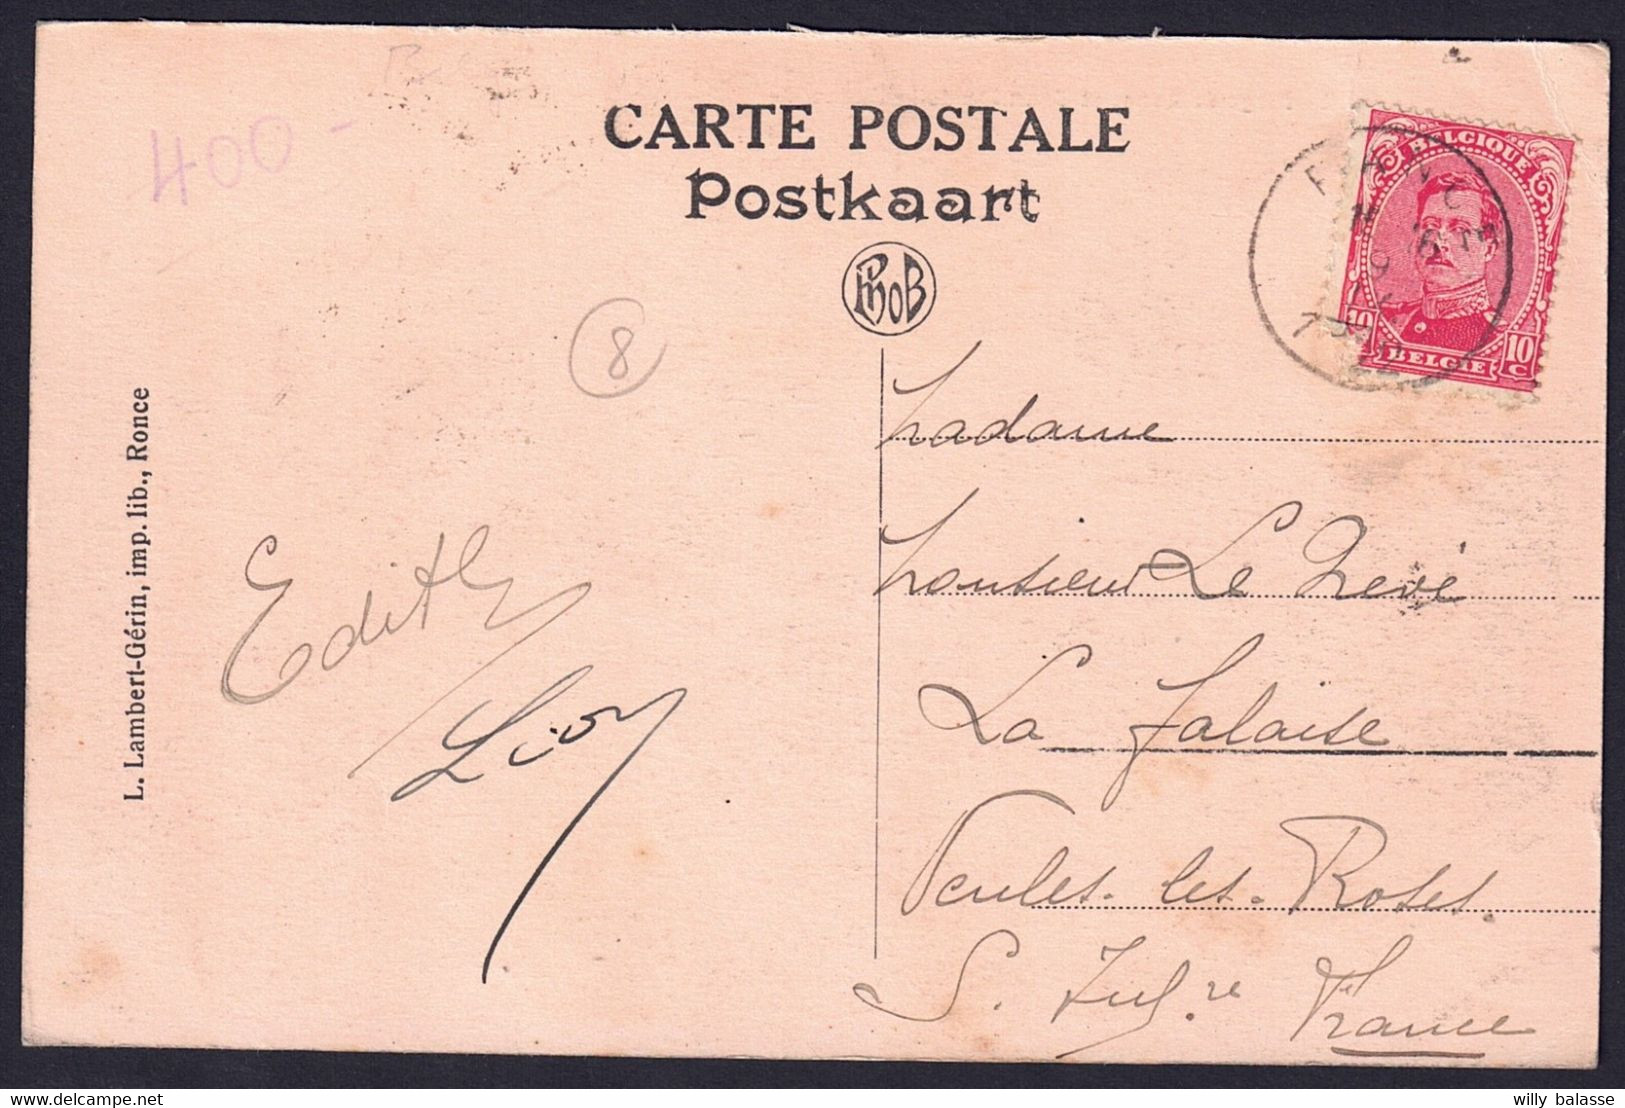 400-
CARTE POSTALE
Postkaart
PhoB
8
BELGIQUE
10 10
C
BELGIE
L. Lambert-Gérin, imp. lib., Ronce
Edith
Léon
Madame
Monsieur Le
La Falaise
Veules-les-Roses.
S. Infre France
willy balasse